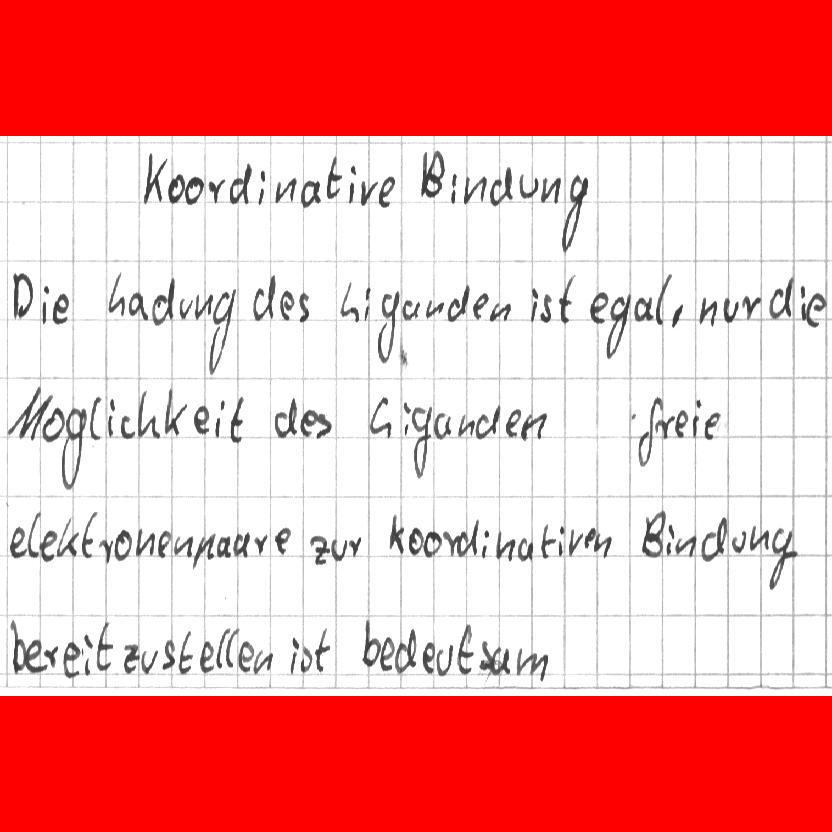 Koordinative Bindung
Die Ladung des Liganden ist egal, nur die
Moglichkeit des Liganden freie
elektronenpaare zur koordinativen Bindung
bereitzustellen ist bedeutsam